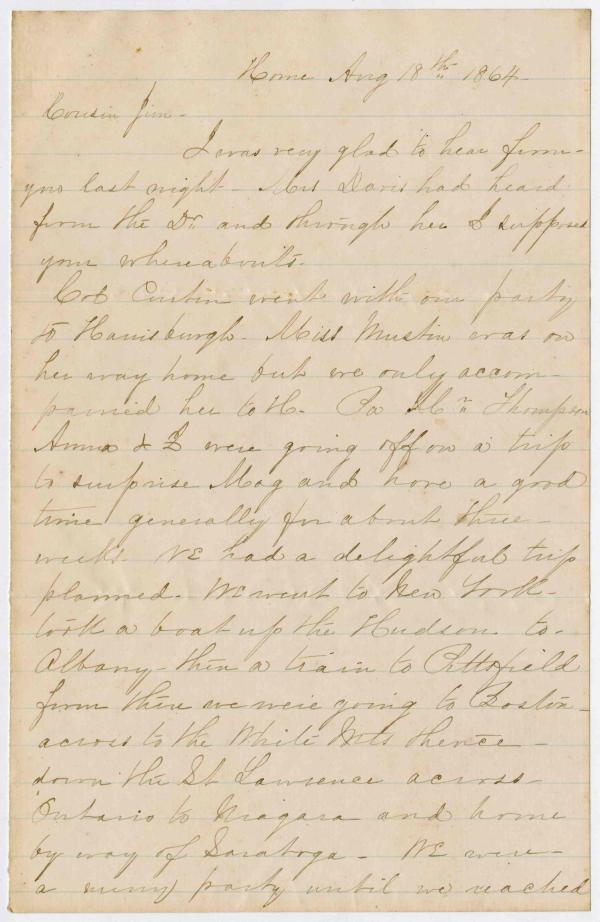 Home Aug 18th 1864-
Cousin Jim-
I was very glad to hear from-
you last night- Mrs Davis had heard
from the Dr. and through her I supposed
your whereabouts.
Col Curtin went with our party
to Harrisburgh- Miss Mustin was on
her way home but we only accom-
panied her to H- Pa Thompson
Anna & I were going off on a trip
to surprise Mag and have a good
time generally for about three-
weeks. We had a delightful trip
planned. We went to New York-
took a boat up the Hudson to-
Albany- then a train to Pittsfield
from there we were going to Boston-
across to the White Mts thence-
down the St Lawrence across-
Ontario to Niagara and home
by way of Saratoga- We were-
a merry party until we reached